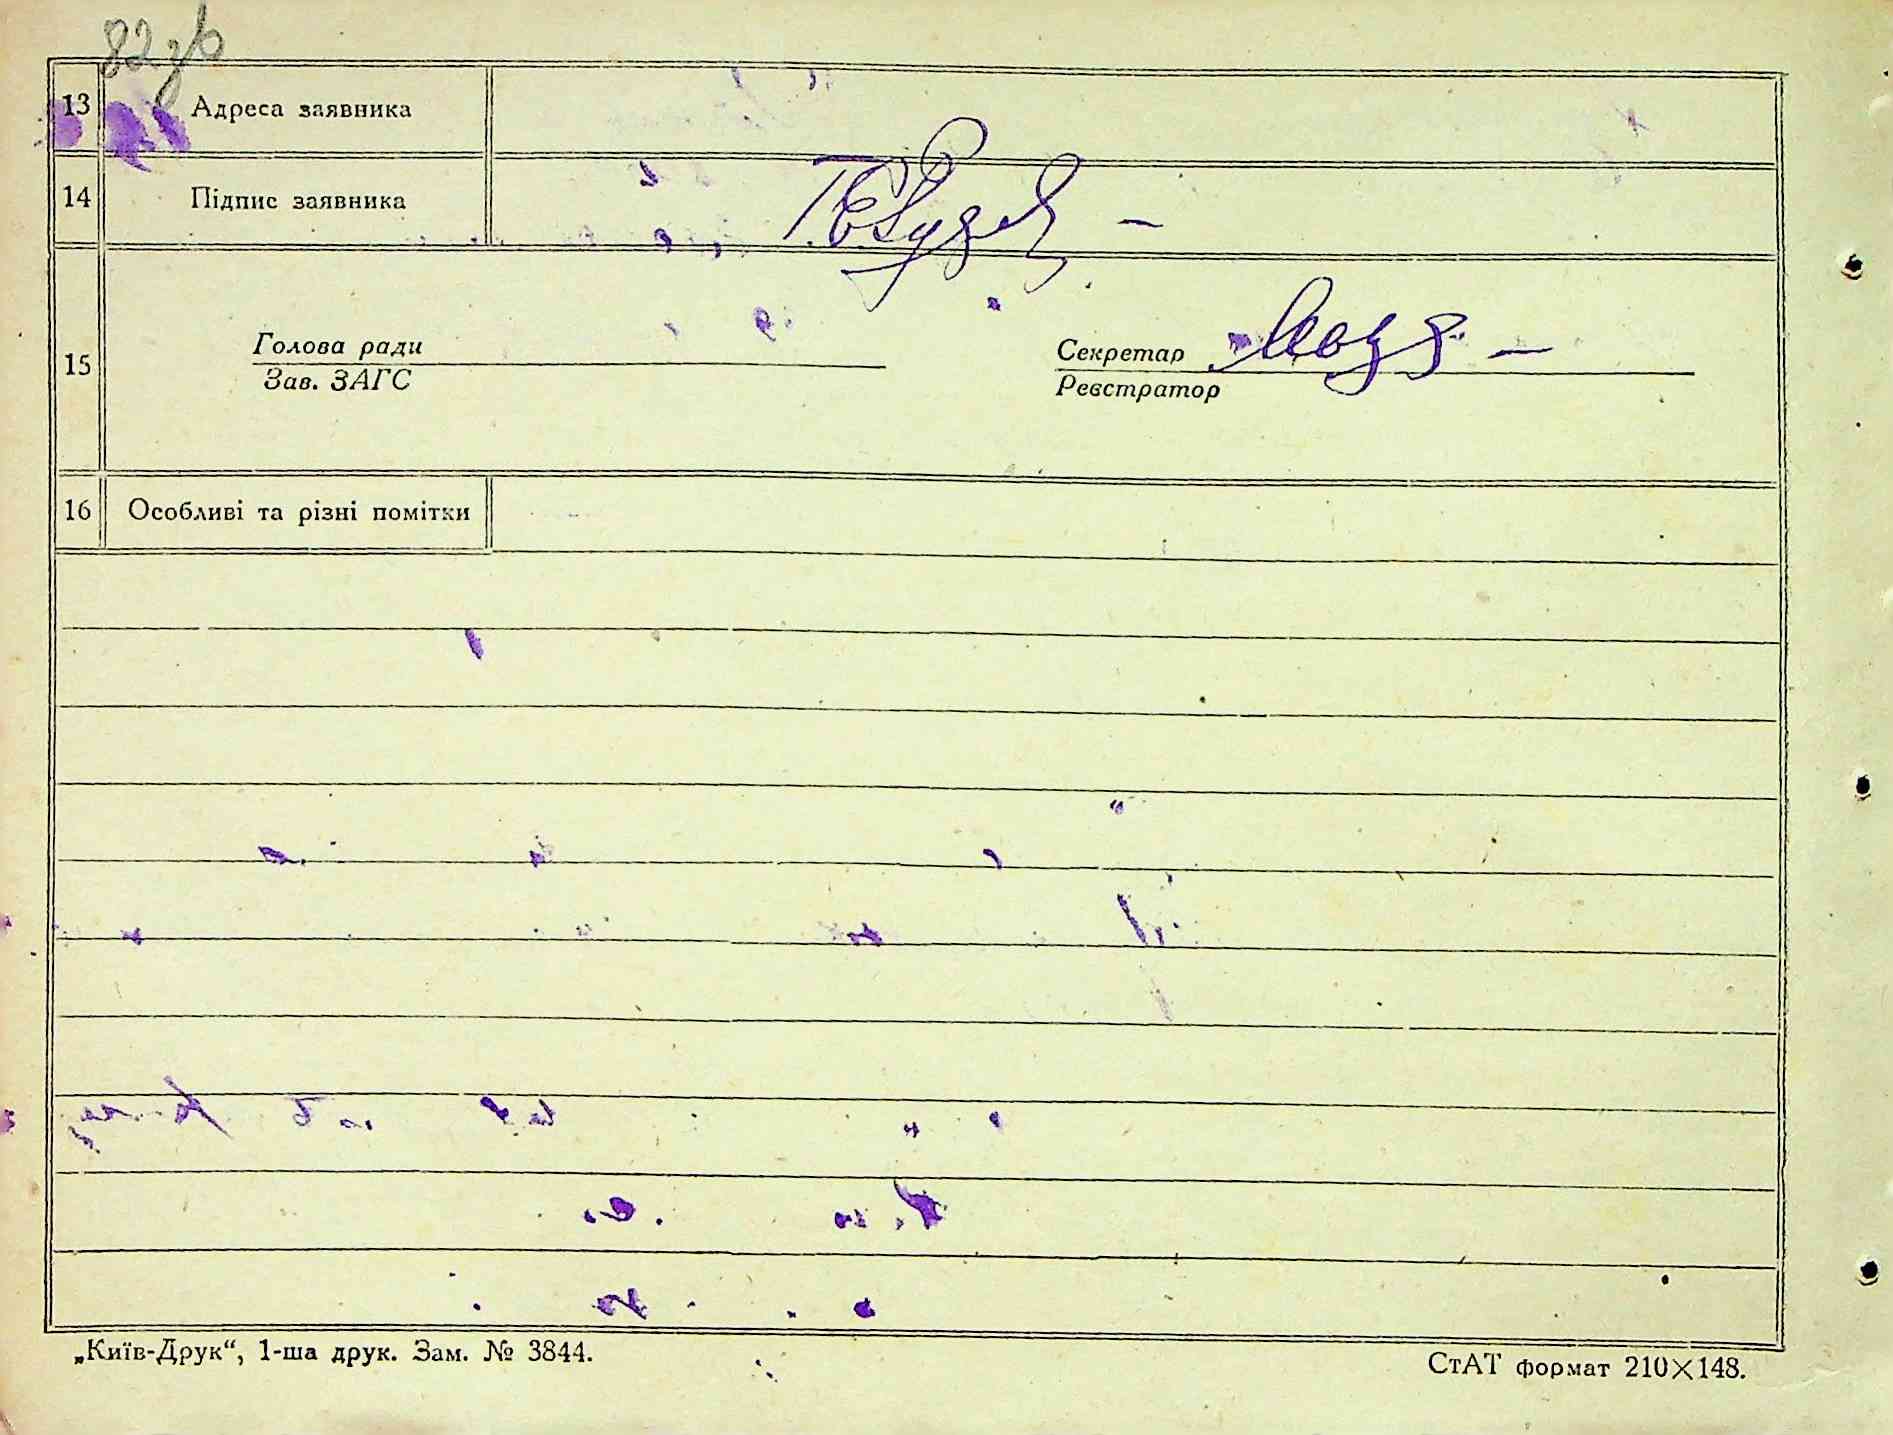 82зв
13 Адреса заявника
14 Підпис заявника
15
Голова ради
Зав. ЗАГС
Секретар
Реєстратор
16 Особливі та різні помітки
„Київ-Друк“, 1-ша друк. Зам. № 3844.
СтАТ формат 210×148.